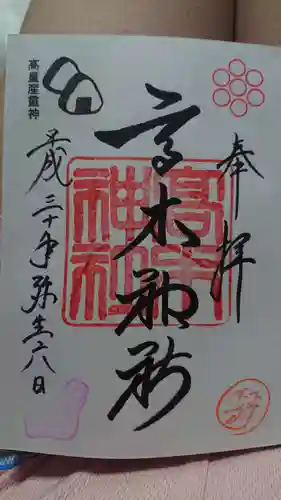 奉拝
高木神社
高木神社
高皇産霊神
平成三十年弥生六八日